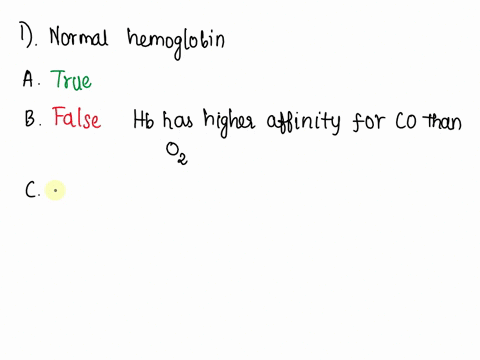 1). Normal hemoglobin
A. True
B. False Hb has higher affinity for CO than
O₂
C.